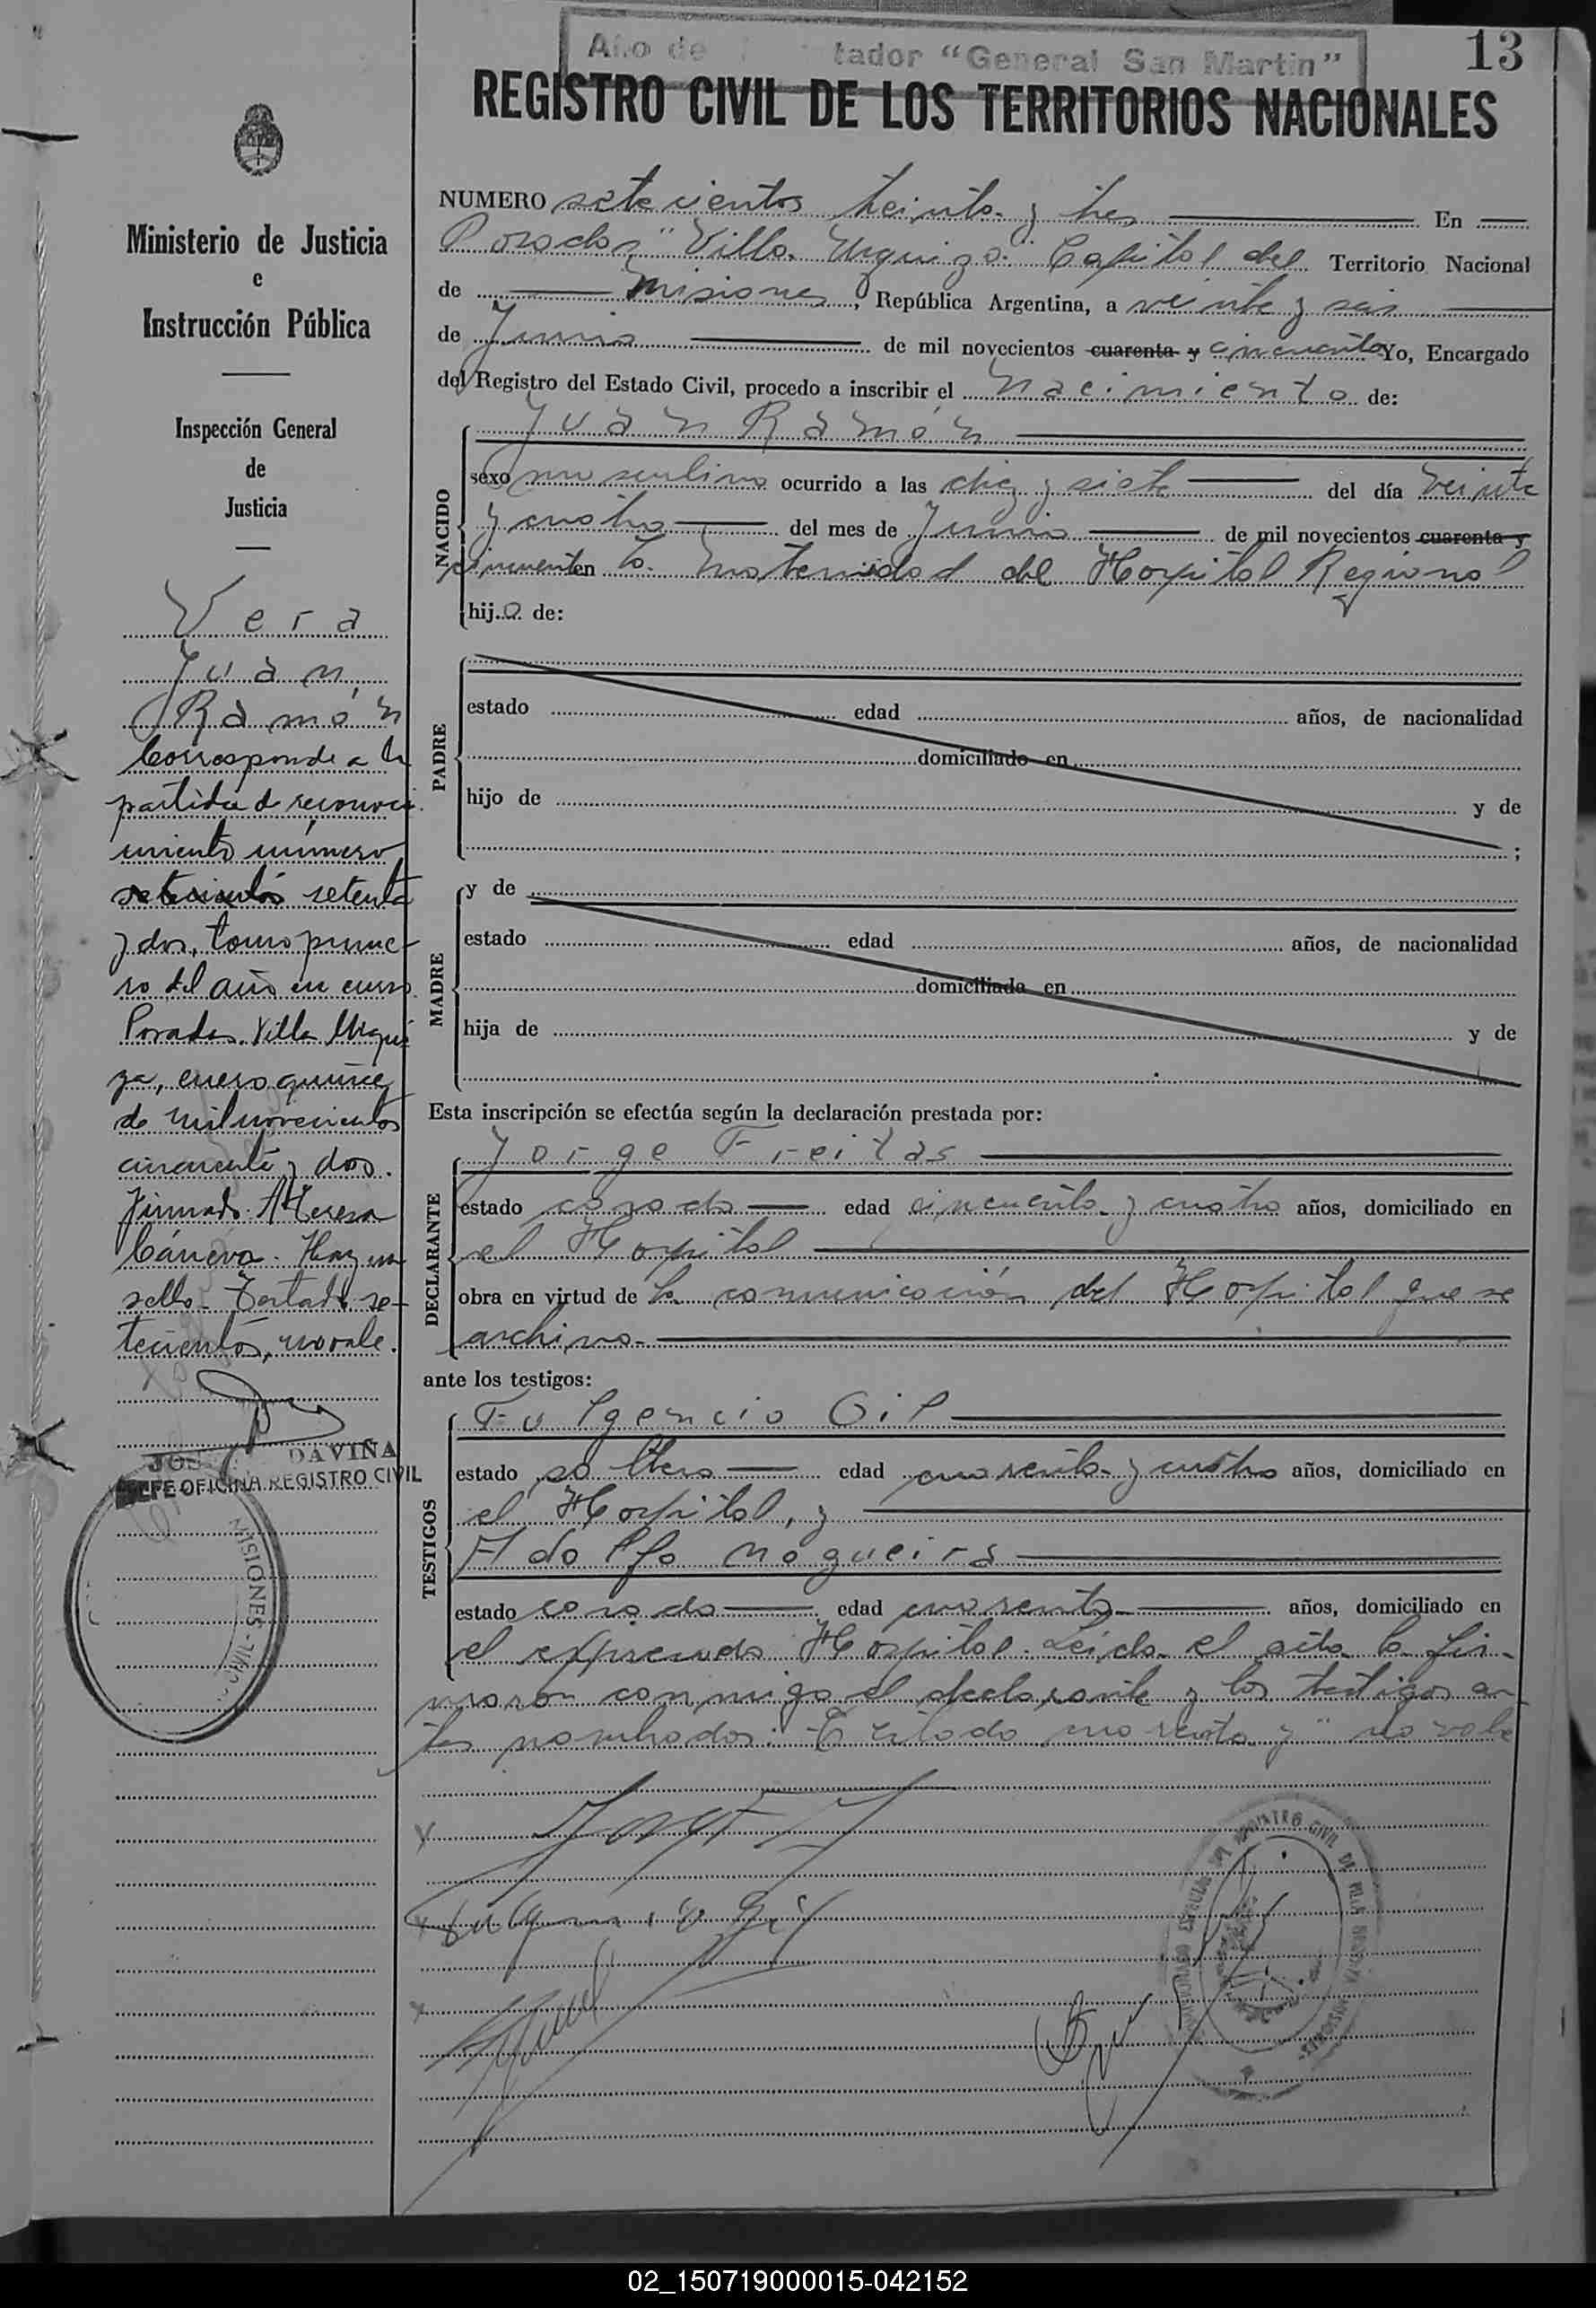 Año de tador "General San Martin"
13
REGISTRO CIVIL DE LOS TERRITORIOS NACIONALES
Ministerio de Justicia
e
Instrucción Pública
Inspección General
de
Justicia
Vera
Juan
Ramón
Corresponde a la
partida de reconoci
miento número
setecientos setenta
y dos, tomo prime-
ro del año en curso
Posadas. Villa Urqui
za, enero quince
de mil novecientos
cincuenta y dos.
Firmado. A Teresa
Cáneva. Hay un
sello. Testado se-
tecientos, no vale.
DAVIÑA
JEFE OFICINA REGISTRO CIVIL
MISIONES
NUMERO setecientos treinta y tres En
Posadas "Villa Urquiza" Capital del Territorio Nacional
de Misiones, República Argentina, a veinte y seis
de Junio de mil novecientos cuarenta y cincuenta Yo, Encargado
del Registro del Estado Civil, procedo a inscribir el nacimiento de:
NACIDO
Juan Ramón
sexo masculino ocurrido a las diez y siete del día veinte
y cuatro del mes de Junio de mil novecientos cuarenta y
cincuenta en la Maternidad del Hospital Regional
hijo de:
PADRE
estado edad años, de nacionalidad
domiciliado en
hijo de y de
;
MADRE
y de
estado edad años, de nacionalidad
domiciliada en
hija de y de
Esta inscripción se efectúa según la declaración prestada por:
DECLARANTE
Jorge Freitas
estado casado edad cincuenta y cuatro años, domiciliado en
el Hospital
obra en virtud de la comunicación del Hospital que se
archiva.
ante los testigos:
TESTIGOS
Fulgencio Gil
estado soltero edad cuarenta y cuatro años, domiciliado en
el Hospital, y
Adolfo Nogueira
estado casado edad cuarenta años, domiciliado en
el expresado Hospital. Leída el acta la fir-
maron conmigo el declarante y los testigos an-
tes nombrados. Testado cuarenta y" no vale
Fulgencio Gil
REGISTRO CIVIL
02_150719000015-042152